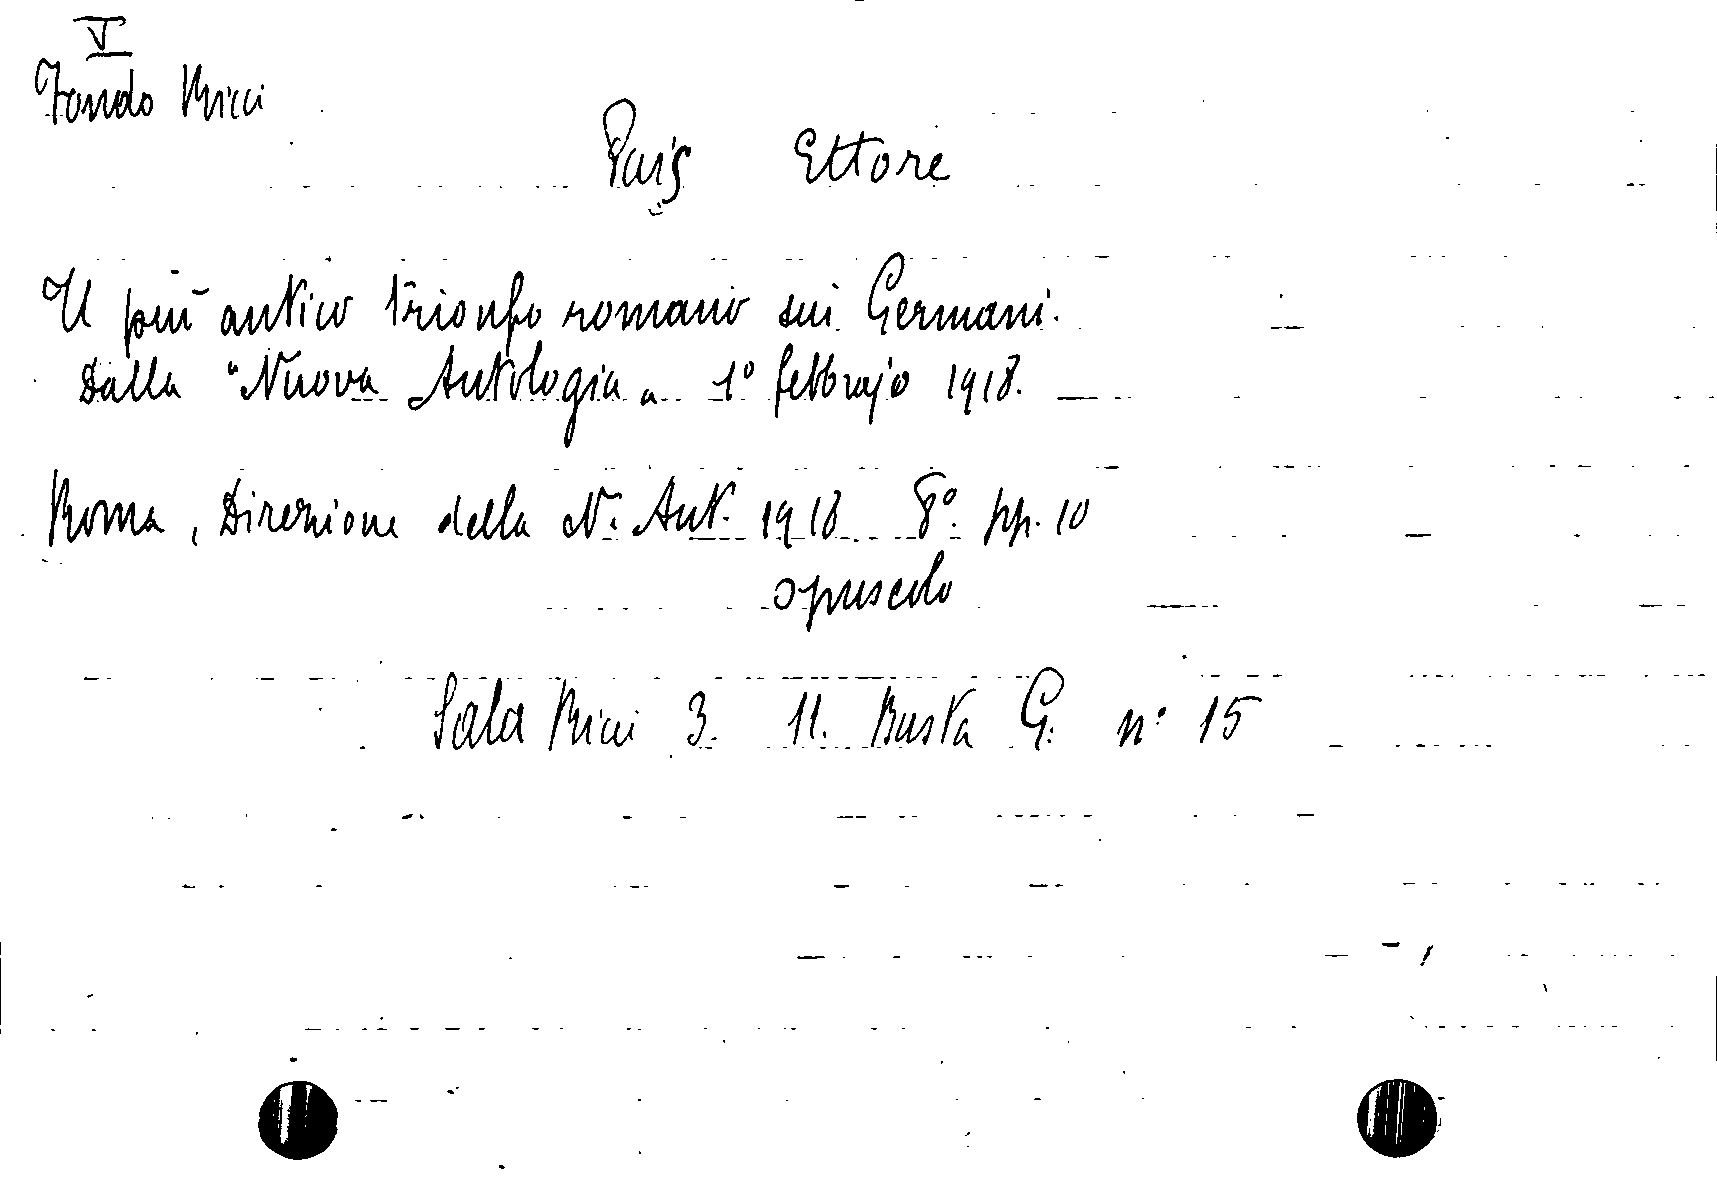 V
Fondo Ricci
Pais Ettore
Il più antico trionfo romano sui Germani.
Dalla "Nuova Antologia" 1° febbrajo 1918.
Roma, Direzione della N. Ant. 1918 8° pp. 10
opuscolo
Sala Ricci 3. 11. Busta G. n° 15